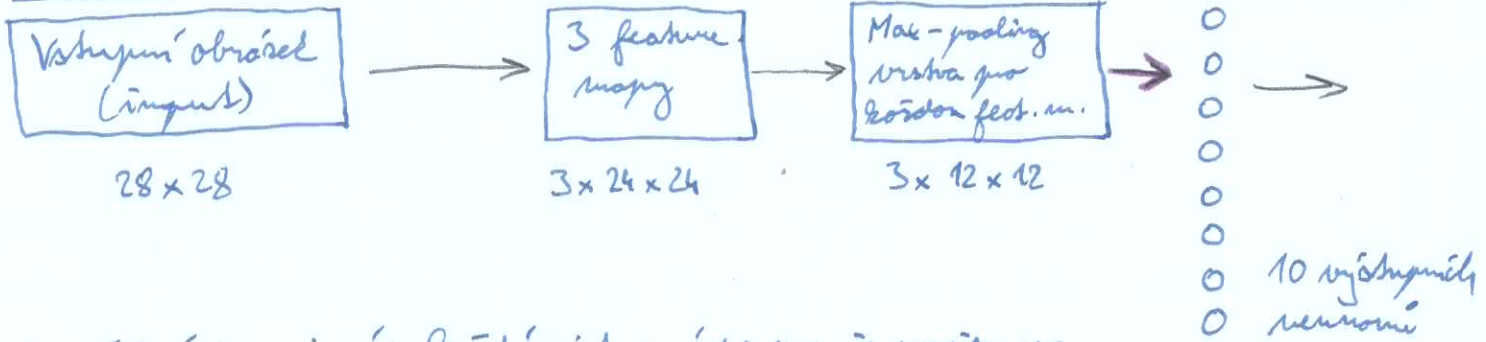 Vstupní obrázek
(input)
28 x 28
3 feature
mapy
3 x 24 x 24
Max-pooling
vrstva pro
každou feat. m.
3 x 12 x 12
10 výstupních
neuronů